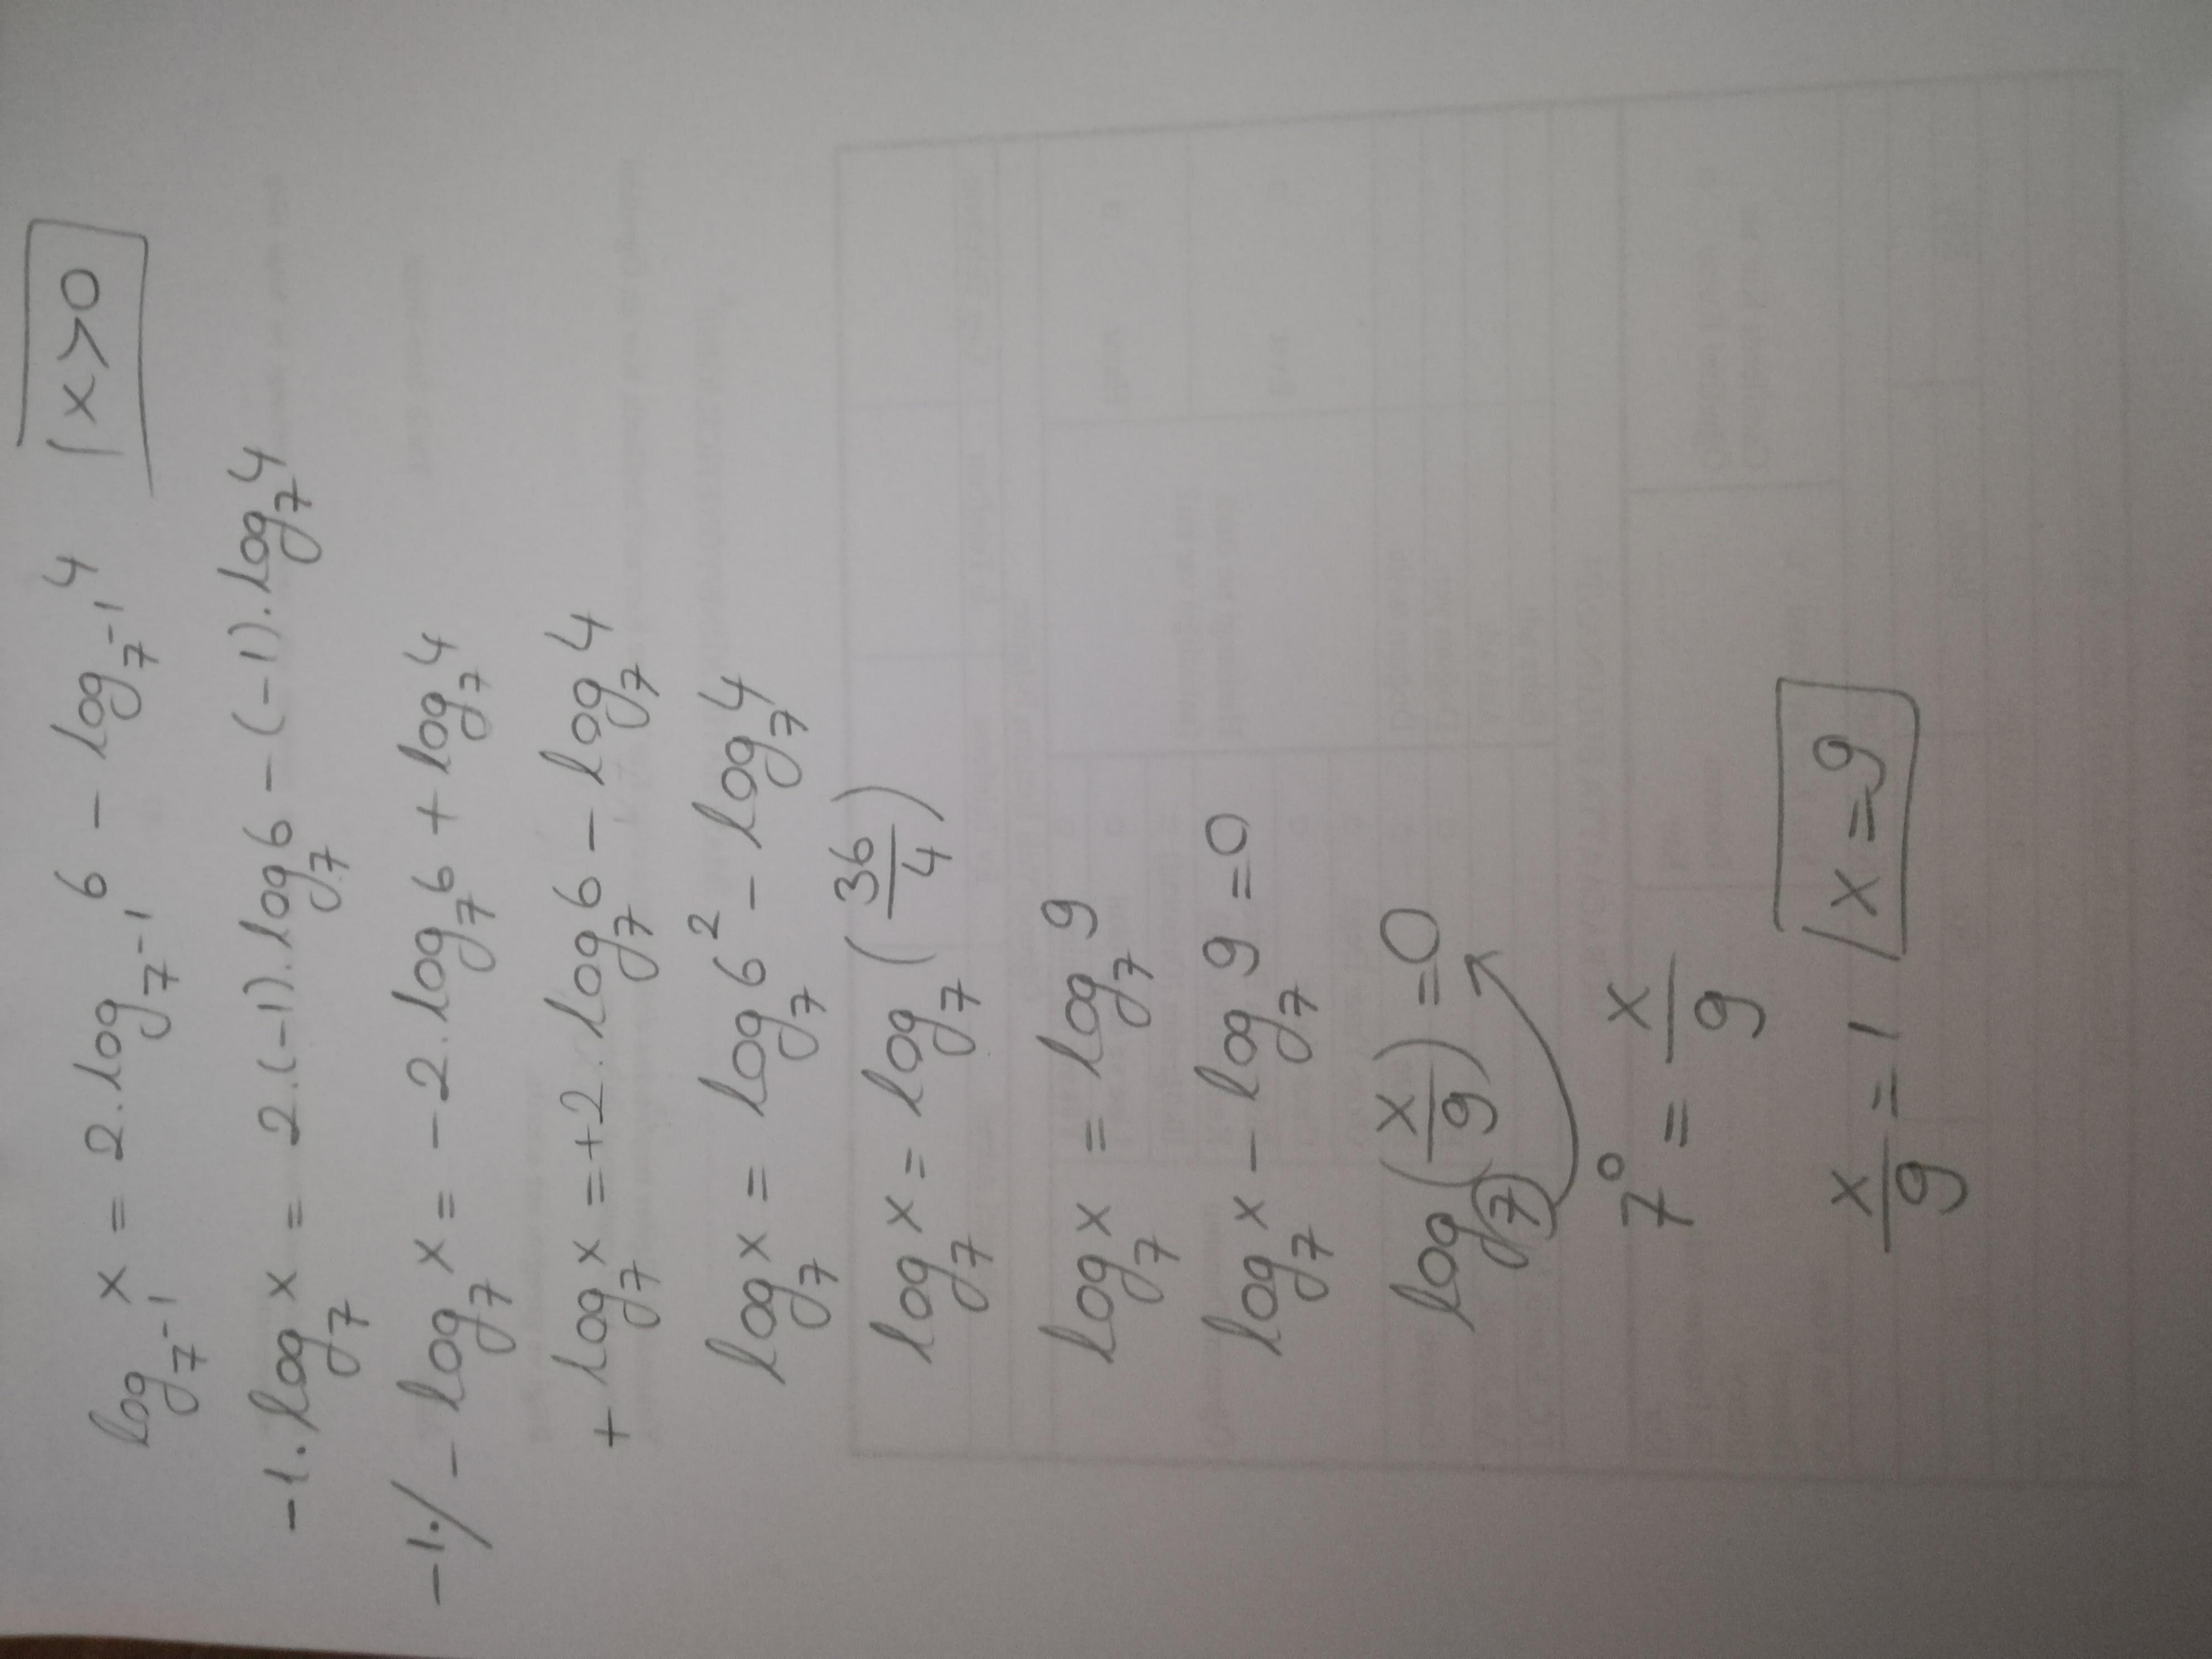 log₇₋₁ x = 2 . log₇₋₁ 6 - log₇₋₁ 4 | x>0
-1 . log₇ x = 2.(-1). log₇ 6 - (-1) . log₇ 4
-1 . / - log₇ x = - 2 . log₇ 6 + log₇ 4
+ log₇ x = +2 . log₇ 6 - log₇ 4
log₇ x = log₇ 6² - log₇ 4
log₇ x = log₇ (36/4)
log₇ x = log₇ 9
log₇ x - log₇ 9 = 0
log₇ (x/9) = 0
7⁰ = x/9
x/9 = 1 | x = 9